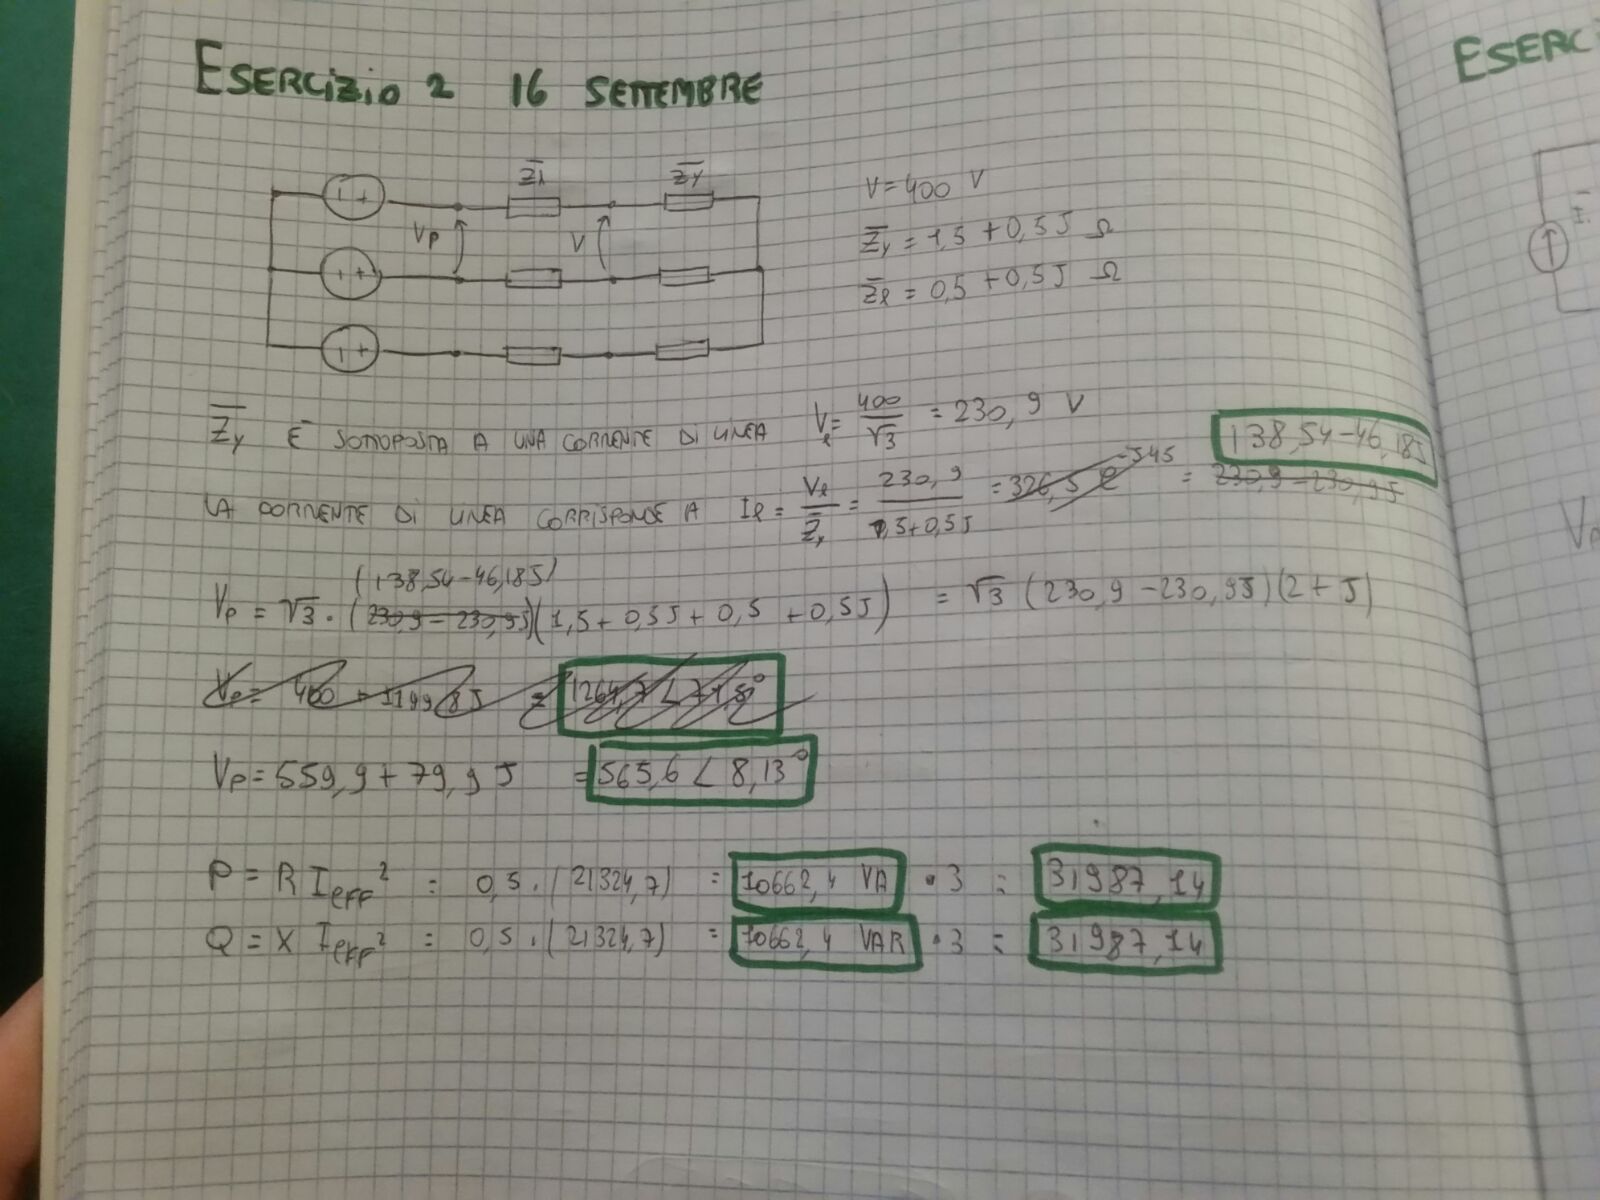 ESERCIZIO 2 16 SETTEMBRE
Z̅ℓ Z̅y
Vp V
V=400 V
Z̅y = 1,5 + 0,5J Ω
Z̅ℓ = 0,5 + 0,5J Ω
Z̅y È SOTTOPOSTA A UNA CORRENTE DI LINEA Vℓ = 400/√3 = 230,9 V
LA CORRENTE DI LINEA CORRISPONDE A Iℓ = Vℓ/Z̅y = 230,9/1,5+0,5J = 326,5 e^-J45 = 230,9 - 230,9J
138,54-46,18J
(138,54-46,18J)
Vp = √3 · (230,9 - 230,9J)(1,5 + 0,5J + 0,5 + 0,5J) = √3 (230,9 - 230,9J)(2 + J)
Vp = 559,9 + 79,9 J = 565,6 ∠ 8,13°
P = R Ieff² = 0,5 · (21324,7) = 10662,4 VA · 3 = 31987,14
Q = X Ieff² = 0,5 · (21324,7) = 10662,4 VAR · 3 = 31987,14